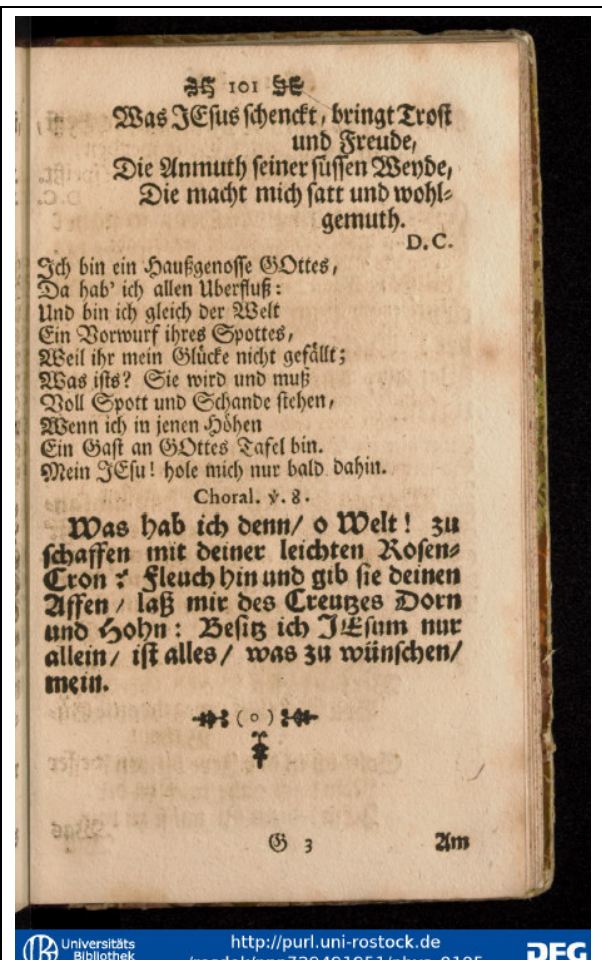 101
Was JEsus schenckt, bringt Trost
und Freude,
Die Anmuth seiner süssen Weyde,
Die macht mich satt und wohl-
gemuth.
D. C.
Ich bin ein Haußgenosse GOttes,
Da hab' ich allen Uberfluß:
Und bin ich gleich der Welt
Ein Vorwurf ihres Spottes,
Weil ihr mein Glücke nicht gefällt;
Was ists? Sie wird und muß
Voll Spott und Schande stehen,
Wenn ich in jenen Höhen
Ein Gast an GOttes Tafel bin.
Mein JEsu! hole mich nur bald dahin.
Choral. v. 8.
Was hab ich denn/ o Welt! zu
schaffen mit deiner leichten Rosen-
Cron? Fleuch hin und gib sie deinen
Affen/ laß mir des Creutzes Dorn
und Hohn: Besitz ich JEsum nur
allein/ ist alles/ was zu wünschen/
mein.
G 3 Am
Universitäts
Bibliothek
http://purl.uni-rostock.de
DFG